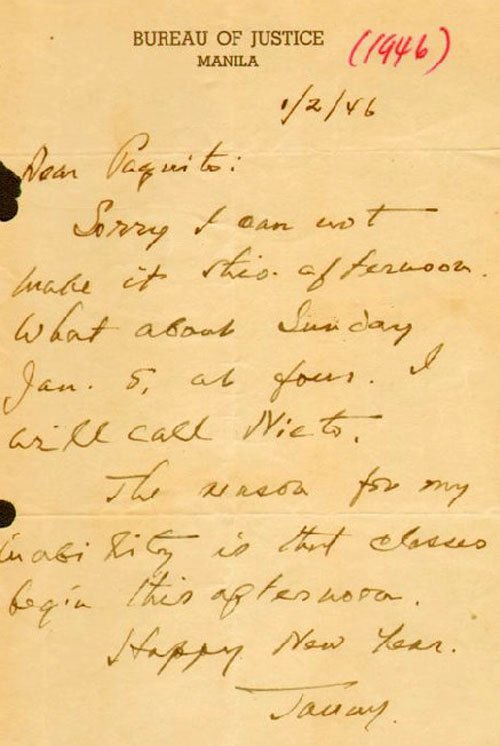 BUREAU OF JUSTICE
MANILA
(1946)
1/2/46
Dear Paquito:
Sorry I can not
make it this afternoon.
What about Sunday
Jan. 5, at four. I
will call Nieto.
The reason for my
inability is that classes
begin this afternoon.
Happy New Year.